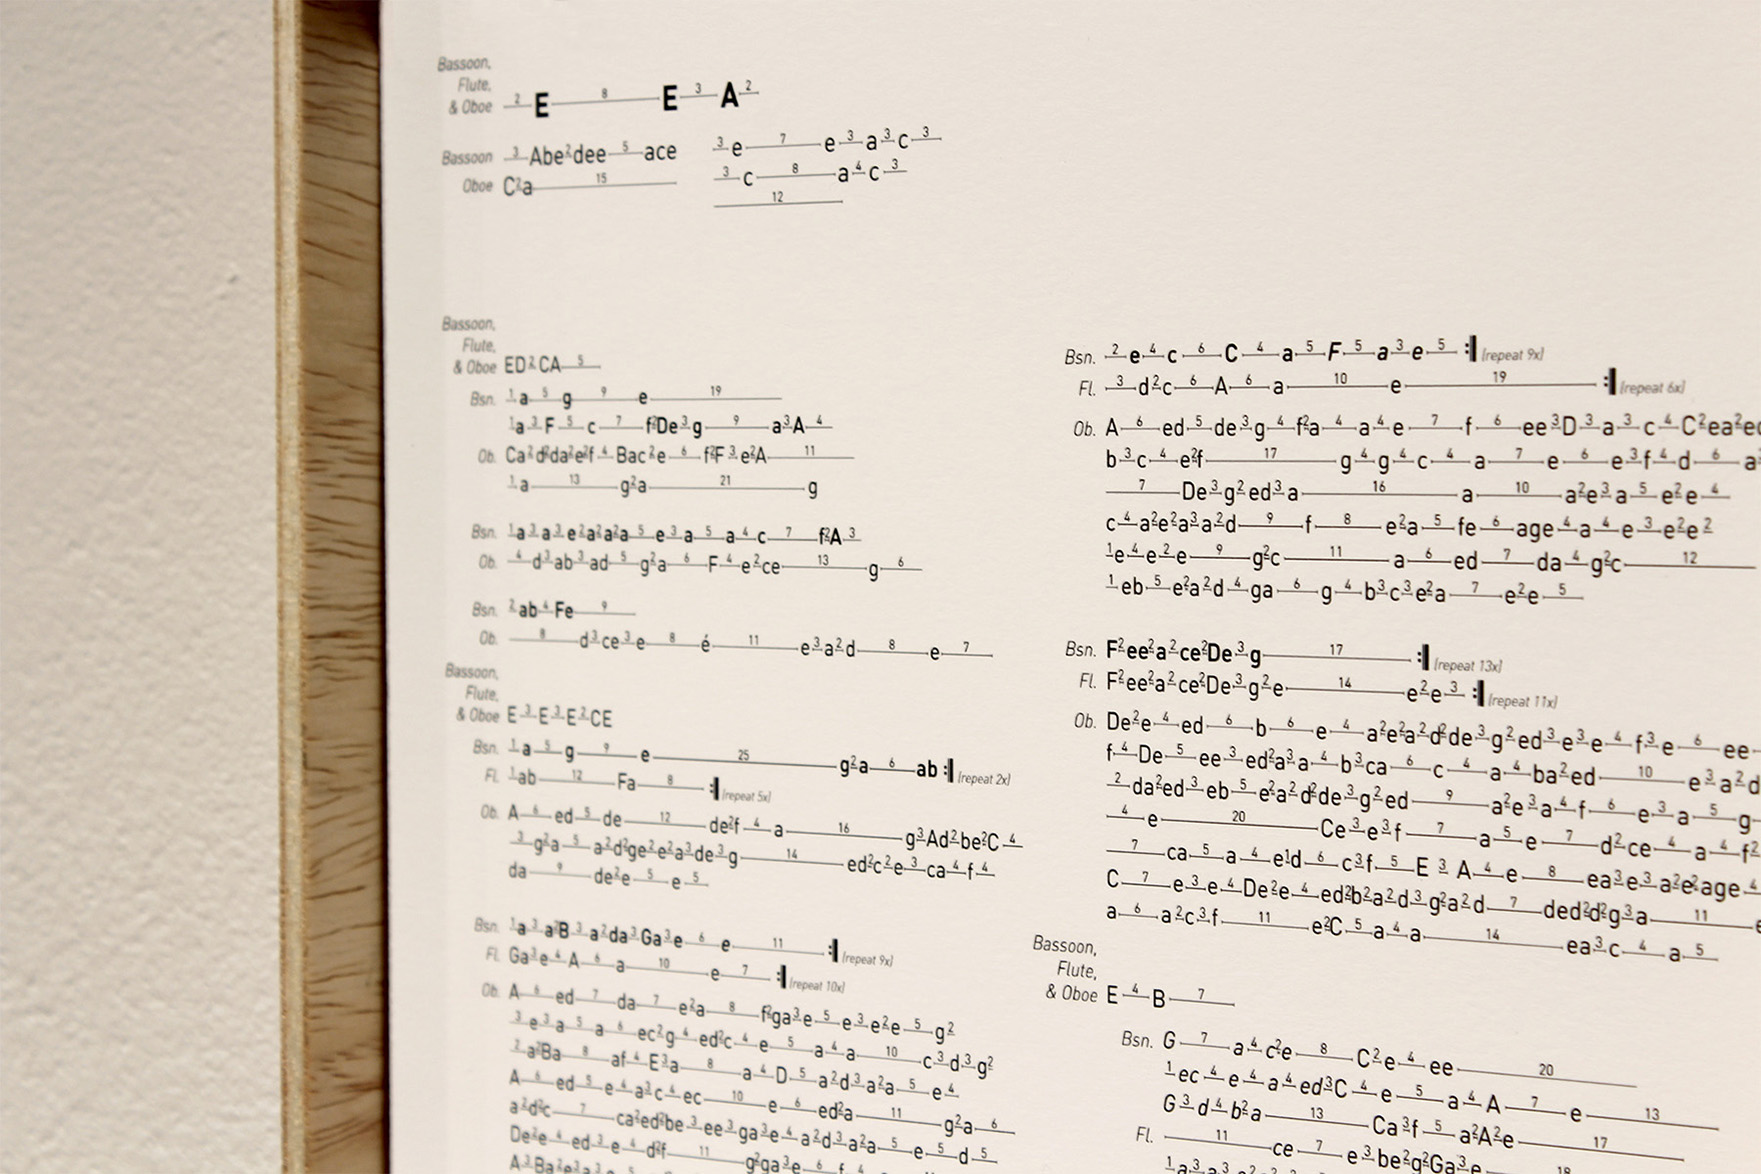 Bassoon,
Flute,
& Oboe 2 E 8 E 3 A 2
Bassoon 3 Abe 2 dee 5 ace 3 e 7 e 3 a 3 c 3
Oboe C 2 a 15 3 c 8 a 4 c 3
12
Bassoon,
Flute,
& Oboe ED 2 CA 5
Bsn. 1 a 5 g 9 e 19
1 a 3 F 5 c 7 f 2 De 3 g 9 a 3 A 4
Ob. Ca 2 d 2 da 2 e 2 f 4 Bac 2 e 6 f 2 F 3 e 2 A 11
1 a 13 g 2 a 21 g
Bsn. 1 a 3 a 3 e 2 a 2 a 2 a 5 e 3 a 5 a 4 c 7 f 2 A 3
Ob. 4 d 3 ab 3 ad 5 g 2 a 6 F 4 e 2 ce 13 g 6
Bsn. 2 ab 4 Fe 9
Ob. 8 d 3 ce 3 e 8 é 11 e 3 a 2 d 8 e 7
Bassoon,
Flute,
& Oboe E 3 E 3 E 2 CE
Bsn. 1 a 5 g 9 e 25 g 2 a 6 ab :| (repeat 2x)
Fl. 1 ab 12 Fa 8 :| (repeat 5x)
Ob. A 6 ed 5 de 12 de 2 f 4 a 16 g 3 Ad 2 be 2 C 4
3 g 2 a 5 a 2 d 2 ge 2 e 2 a 3 de 3 g 14 ed 2 c 2 e 3 ca 4 f 4
da 9 de 2 e 5 e 5
Bsn. 1 a 3 a 2 B 3 a 2 da 3 Ga 3 e 6 e 11 :| (repeat 9x)
Fl. Ga 3 e 4 A 6 a 10 e 7 :| (repeat 10x)
Ob. A 6 ed 7 da 7 e 2 a 8 f 2 ga 3 e 5 e 3 e 2 e 5 g 2
3 e 3 a 5 a 6 ec 2 g 4 ed 2 c 4 e 5 a 4 a 10 c 3 d 3 g 2
2 a 2 Ba 8 af 4 E 3 a 8 a 4 D 5 a 2 d 3 a 2 a 5 e 4
A 6 ed 5 e 4 a 3 c 4 ec 10 e 6 ed 2 a 11 g 2 a 6
a 2 d 2 c 7 ca 2 ed 2 be 3 ee 3 ga 3 e 4 a 2 d 3 a 2 a 5 e 5 d 5
De 2 e 4 ed 3 e 4 d 2 f 11 g 2 ga 3 e 6 f 4
A 3 Ba 2 e 3 a 3
Bsn. 2 e 4 c 6 C 4 a 5 F 5 a 3 e 5 :| (repeat 9x)
Fl. 3 d 2 c 6 A 6 a 10 e 19 :| (repeat 6x)
Ob. A 6 ed 5 de 3 g 4 f 2 a 4 a 4 e 7 f 6 ee 3 D 3 a 3 c 4 C 2 ea 2 e
b 3 c 4 e 2 f 17 g 4 g 4 c 4 a 7 e 6 e 3 f 4 d 6 a
7 De 3 g 2 ed 3 a 16 a 10 a 2 e 3 a 5 e 2 e 4
c 4 a 2 e 2 a 3 a 2 d 9 f 8 e 2 a 5 fe 6 age 4 a 4 e 3 e 2 e 2
1 e 4 e 2 e 9 g 2 c 11 a 6 ed 7 da 4 g 2 c 12
1 eb 5 e 2 a 2 d 4 ga 6 g 4 b 3 c 3 e 2 a 7 e 2 e 5
Bsn. F 2 ee 2 a 2 ce 2 De 3 g 17 :| (repeat 13x)
Fl. F 2 ee 2 a 2 ce 2 De 3 g 2 e 14 e 2 e 3 :| (repeat 11x)
Ob. De 2 e 4 ed 6 b 6 e 4 a 2 e 2 a 2 d 2 de 3 g 2 ed 3 e 3 e 4 f 3 e 6 ee
f 4 De 5 ee 3 ed 2 a 3 a 4 b 3 ca 6 c 4 a 4 ba 2 ed 10 e 3 a 2 d
2 da 2 ed 3 eb 5 e 2 a 2 d 2 de 3 g 2 ed 9 a 2 e 3 a 4 f 6 e 3 a 5 g
4 e 20 Ce 3 e 3 f 7 a 5 e 7 d 2 ce 4 a 4 f 2
7 ca 5 a 4 e 1 d 6 c 3 f 5 E 3 A 4 e 8 ea 3 e 3 a 2 e 2 age 4
C 7 e 3 e 4 De 2 e 4 ed 2 b 2 a 2 d 3 g 2 a 2 d 7 ded 2 d 2 g 3 a 11
a 6 a 2 c 3 f 11 e 2 C 5 a 4 a 14 ea 3 c 4 a 5
Bassoon,
Flute,
& Oboe E 4 B 7
Bsn. G 7 a 4 c 2 e 8 C 2 e 4 ee 20
1 ec 4 e 4 a 4 ed 3 C 4 e 5 a 4 A 7 e 13
G 3 d 4 b 2 a 13 Ca 3 f 5 a 2 A 2 e 17
Fl. 11 ce 7 e 3 be 2 g 2 Ga 3 e 18
1 a 3 a 3